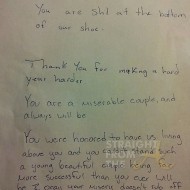 You are shit at the bottom
of our shoe.
Thank You for making a hard
year, harder
You are a miserable couple, and
always will be
You were honored to have us living
above you and you cannot stand such
a young beautiful couple being far
more successful than you ever will
be. I mean your misery doesn't
STRAIGHT
FROM